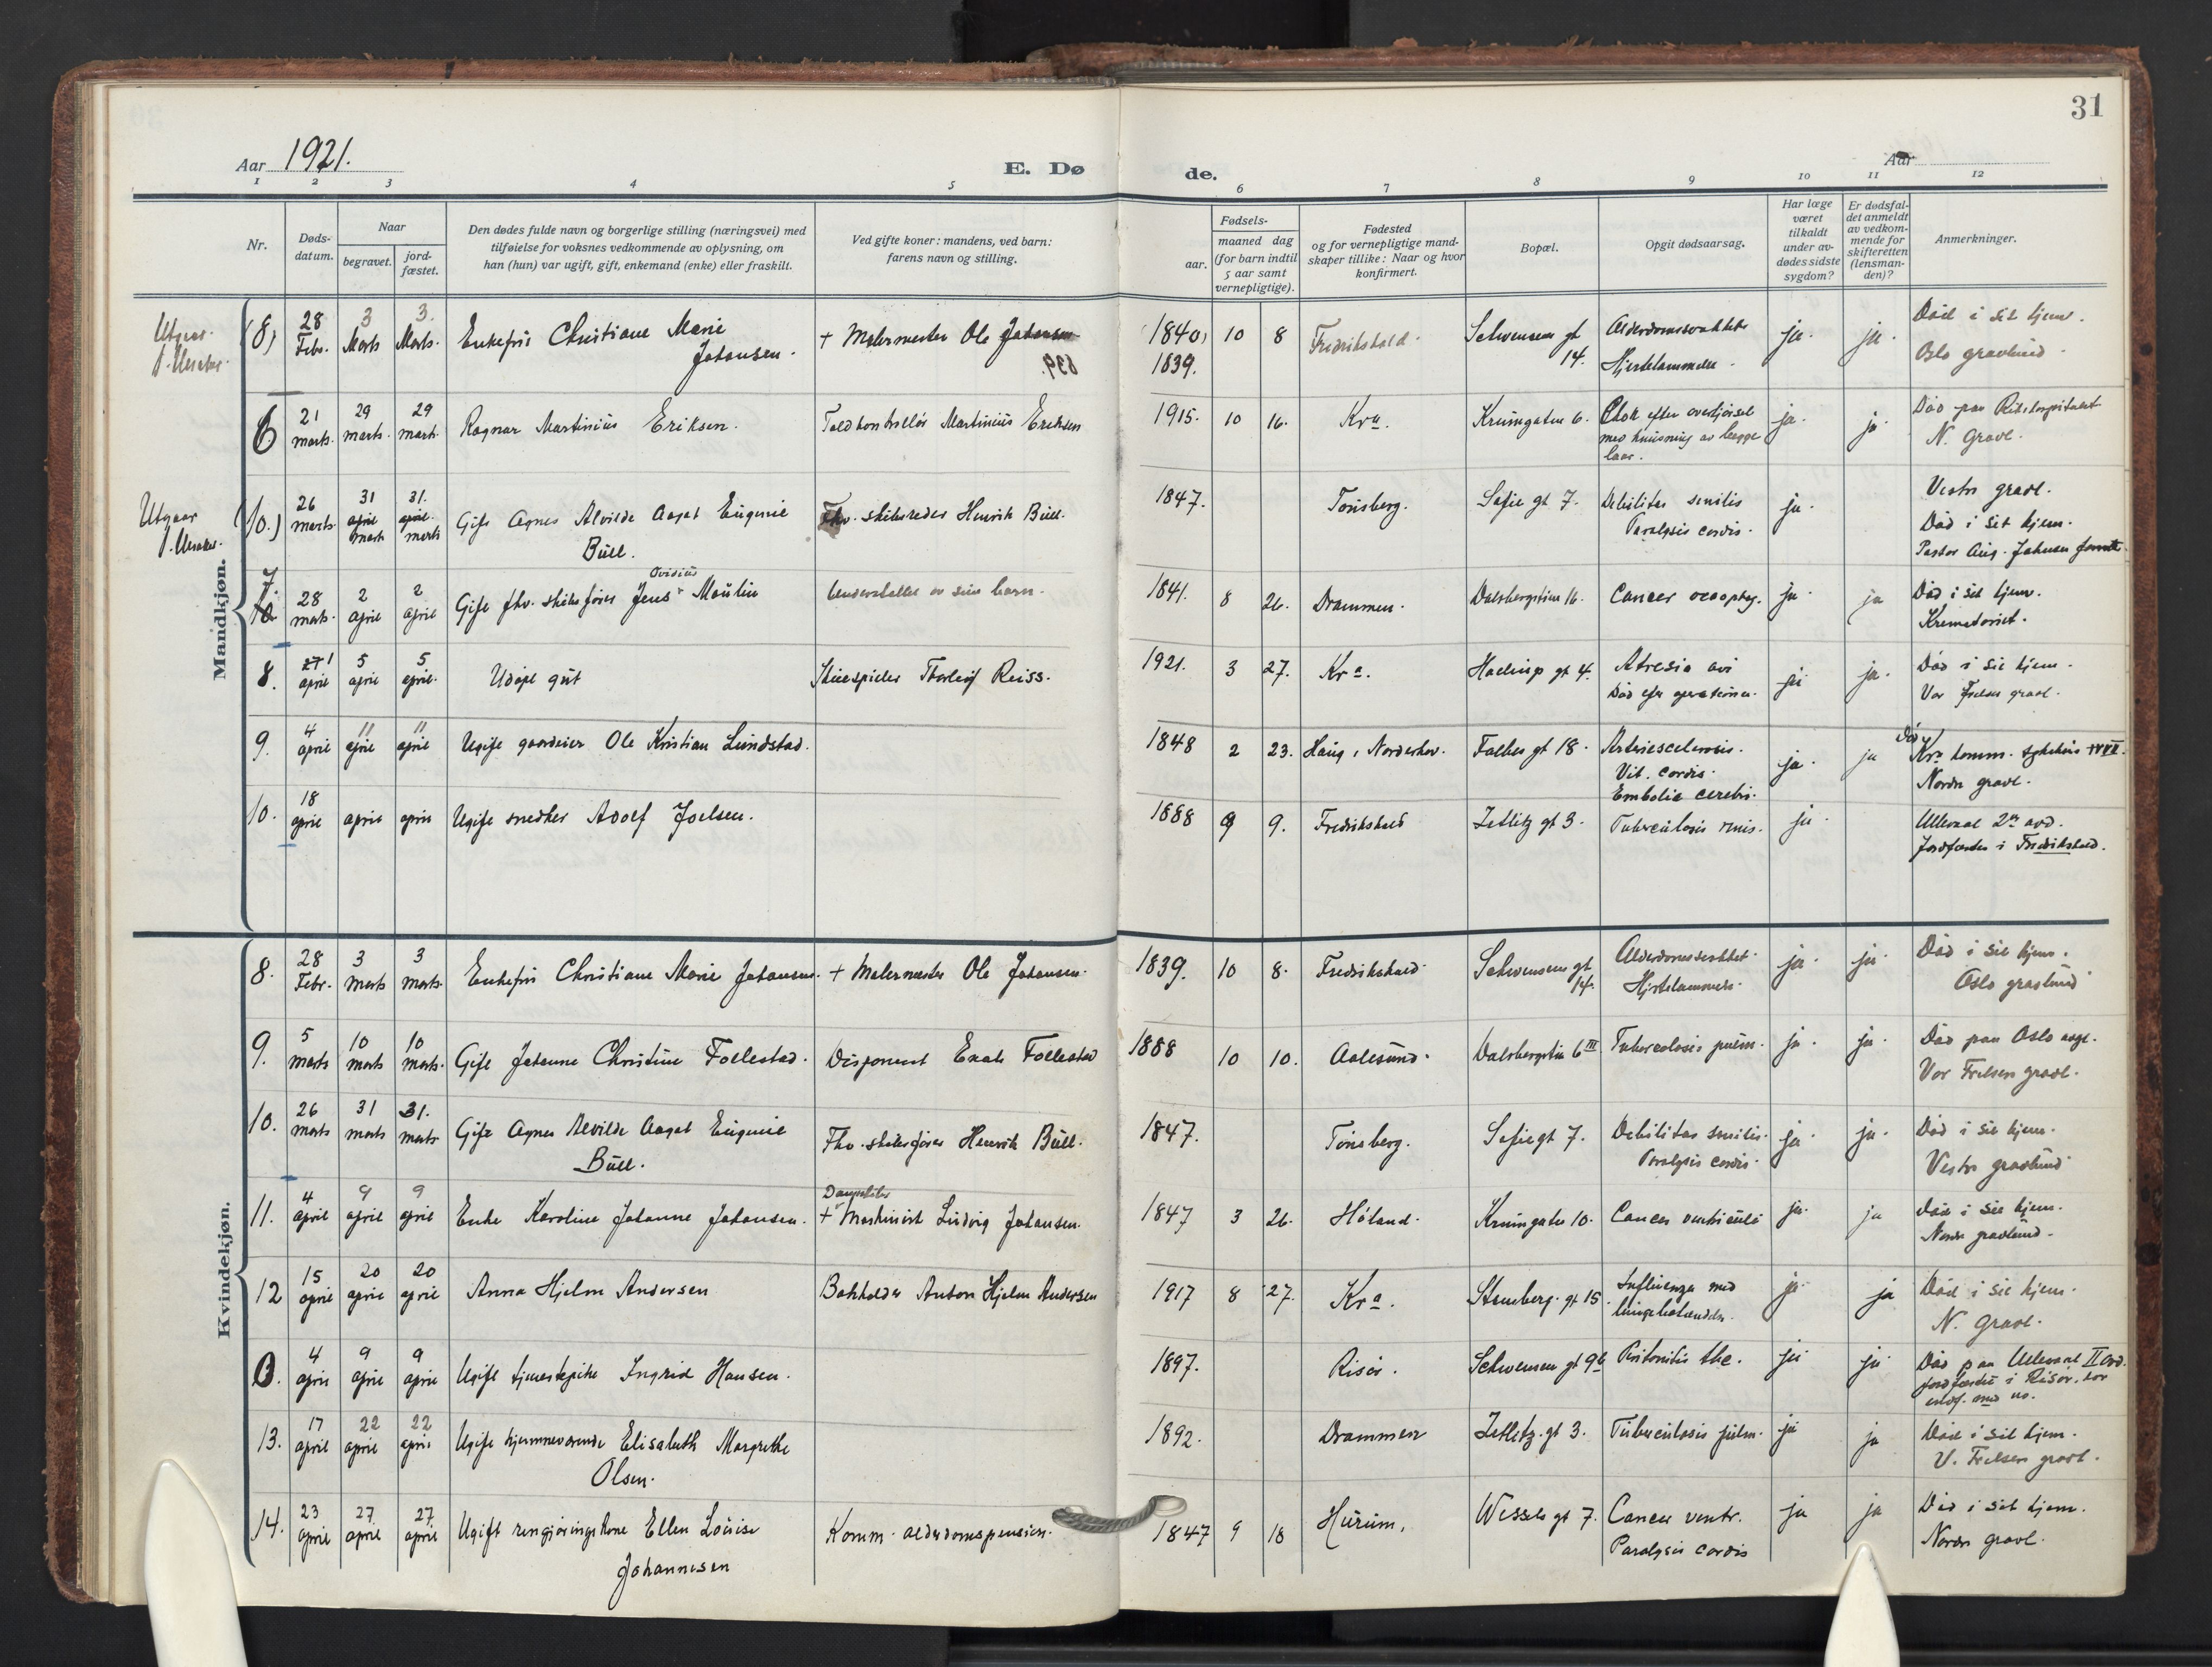 31
Aar 1921.
E. Døde.
Aar
1 2 3 4 5 6 7 8 9 10 11 12
Nr.
Døds-
datum.
Naar
begravet.
jord-
fæstet.
Den dødes fulde navn og borgerlige stilling (næringsvei) med
tilføielse for voksnes vedkommende av oplysning, om
han (hun) var ugift, gift, enkemand (enke) eller fraskilt.
Ved gifte koner: mandens, ved barn:
farens navn og stilling.
aar.
Fødsels-
maaned dag
(for barn indtil
5 aar samt
vernepligtige).
Fødested
og for vernepligtige mand-
skaper tillike: Naar og hvor
konfirmert.
Bopæl.
Opgit dødsaarsag.
Har læge
været
tilkaldt
under av-
dødes sidste
sygdom?
Er dødsfal-
det anmeldt
av vedkom-
mende for
skifteretten
(lensman-
den)?
Anmerkninger.
Mandkjøn.
(8) 28 Febr. 3 Marts 3. Marts. Enkefru Christiane Marie
Johansen. + Malermester Ole Johansen (1840) 1839. 10 8 Fredrikshald. Schwensens gt 14. Alderdomssvakhet
Hjertelammelse. ja. ja. Død i sit hjem.
Oslo gravlund.
6 21 marts. 29 marts. 29 marts. Ragnar Martinius Eriksen. Toldkontrollør Martinius Eriksen 1915. 10 16. Kra. Krumgaten 6. Chok efter overkjørsel
med knusning av begge
laar. ja. ja. Død paa Rikshospitalet
N. Gravl.
Utgaar
(10.) 26 marts. 31 april marts 31. april. marts Gift Agnes Alvilde Aagot Eugenie
Büll. Fhv. skibsreder Henrik Büll. 1847. Tønsberg. Sofie gt 7. Debilitas senilis
Paralysis cordis. ja. Vestre gravl.
Død i sit hjem.
Pastor Aug. Johnsen
7. 28 marts. 2 april 2 april Gift fhv. skibsfører Jens Ovidius Moulin Understøttes av sine barn. 1841. 8 26. Drammen. Dalsbergstien 16. Cancer oesophag. ja. ja Død i sit hjem.
Krematoriet.
8. april 5 april 5 april. Udøpt gut Skuespiller Thorleif Reiss. 1921. 3 27. Kra. Hællup gt 4. Atresia ani
Død efter operationen. ja ja. Død i sit hjem.
Vor Frelsers gravl.
9. 4 april 11 april 11 april Ugift gaardeier Ole Kristian Lundstad. 1848 2 23. Haug, Norderhov. Falbes gt 18. Arteriesclerosis.
Vit. cordis.
Embolia cerebri. ja. ja Død Kra komm. sykehus
Nordre gravl.
10. 18 april april april Ugift snedker Adolf Joelsen. 1888 9 9. Fredrikshald Zetlitz gt 3. Tuberculosis renis. ja. Ulleval 2en avd.
Jordfæstes i Fredrikshald.
Kvindekjøn.
8. 28 Febr. 3 marts 3 marts. Enkefru Christiane Marie Johansen. + Malermester Ole Johansen. 1839. 10 8. Fredrikshald Schwensens gt 14. Alderdomssvakhet.
Hjertelammelse. ja. ja. Død i sit hjem.
Oslo gravlund
9. 5 marts 10 marts 10 marts. Gift Johanne Christine Follestad. Disponent Follestad 1888 10 10. Aalesund. Dalsbergstien 6 III Tuberculosis pulm. ja. ja. Død paa Oslo syge.
Vor Frelsers gravl.
10. 26 marts 31 marts 31. marts Gift Agnes Alvilde Aagot Eugenie
Büll. Fhv. skibsfører Henrik Büll. 1847. Tønsberg. Sofie gt 7. Debilitas senilis.
Paralysis cordis. ja. ja. Død i sit hjem.
Vestre gravlund
11. 4 april 9 april 9 april Enke Karoline Johanne Johansen. + Maskinist Ludvig Johansen. 1847 3 26. Høland. Krumgaten 10. Cancer ventriculi ja. ja Død i sit hjem.
Nordre gravlund.
12 15 april 20 april 20 april Anna Hjelm Andersen Bokholder Anton Hjelm Andersen 1917 8 27. Kra. Stensberg. gt 15. Influenza med
lungebetændelse. ja ja Død i sit hjem.
N. Gravl.
0. 4 april 9 april 9 april Ugift tjenestepike Ingrid Hansen. 1897. Risør. Schwensens gt 9b Peritonitis tbc. ja ja Død paa Ulleval II avd.
Jordfæstet i Risør.
13. 17 april 22 april 22 april Ugift hjemmeværende Elisabeth Margrethe
Olsen. 1892. Drammen Zetlitz. gt 3. Tuberculosis pulm. ja ja Død i sit hjem.
V. Frelsers gravl.
14. 23 april 27 april 27 april Ugift rengjøringskone Ellen Lovise
Johannesen Komm. alderdomspension. 1847 9 18 Hurum. Wessels gt 7. Cancer ventr.
Paralysis cordis ja ja Død i sit hjem.
Nordre gravl.